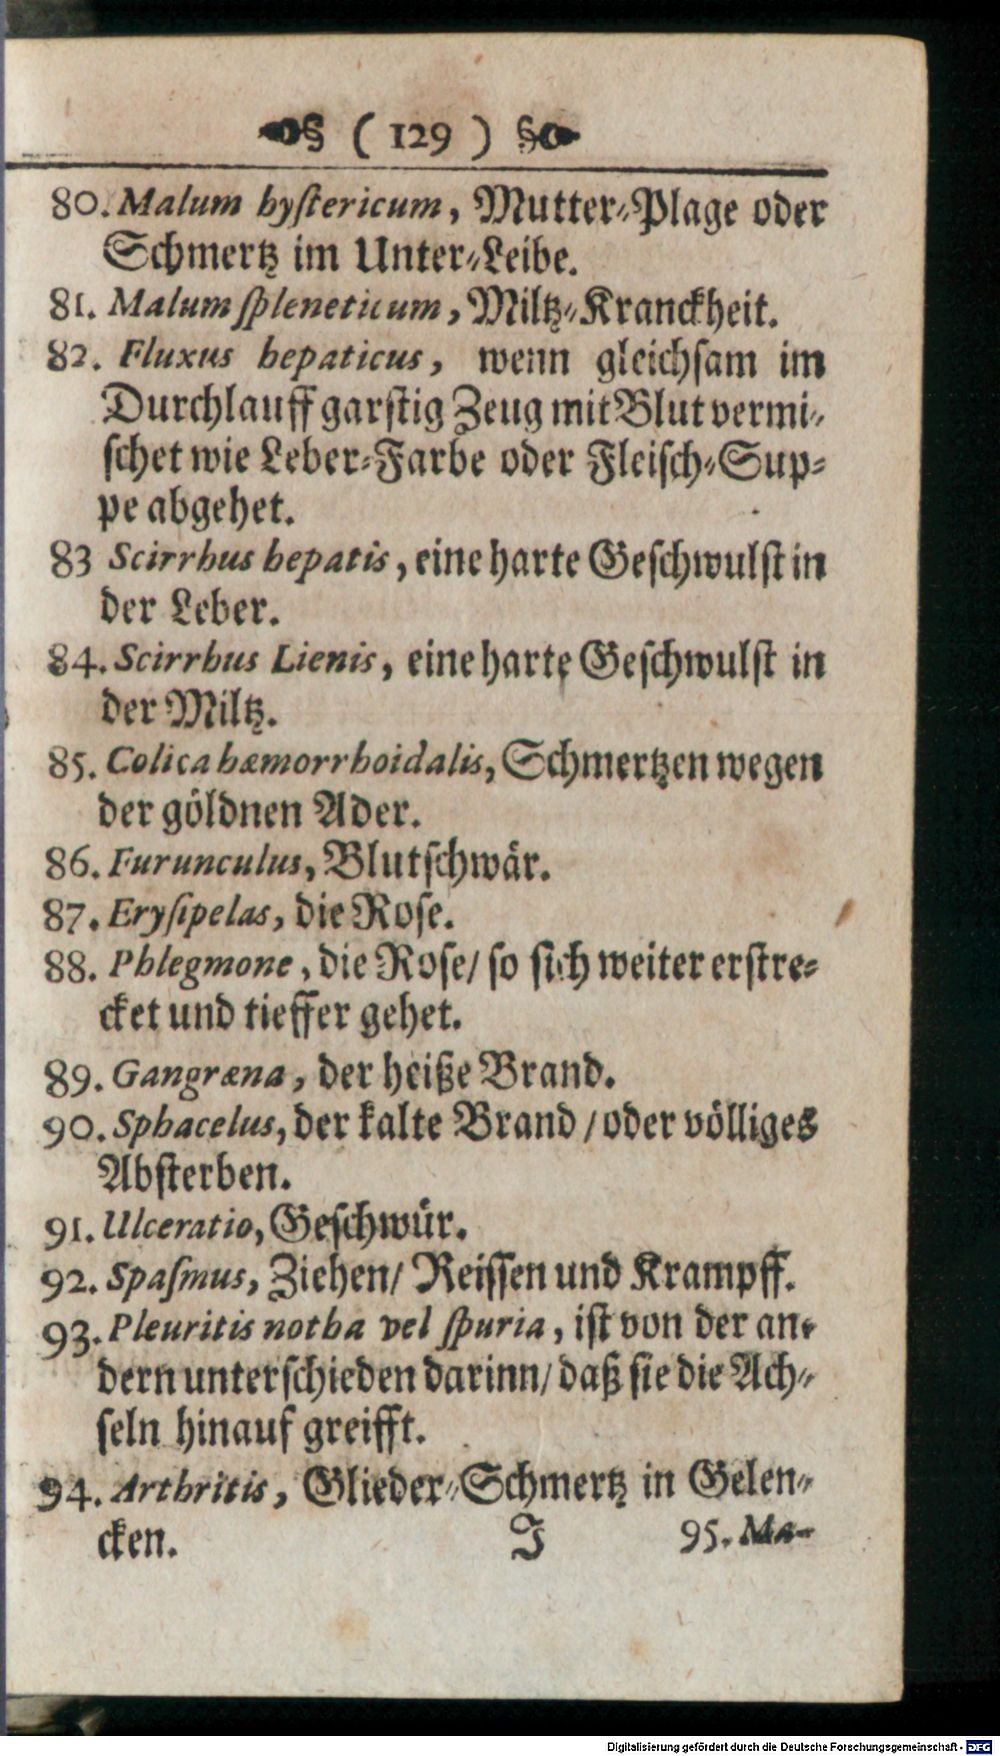 ( 129 )
80. Malum hyſtericum, Mutter-Plage oder
Schmertz im Unter-Leibe.
81. Malum ſpleneticum, Miltz-Kranckheit.
82. Fluxus hepaticus, wenn gleichſam im
Durchlauff garſtig Zeug mit Blut vermi-
ſchet wie Leber-Farbe oder Fleiſch-Sup-
pe abgehet.
83 Scirrhus hepatis, eine harte Geſchwulſt in
der Leber.
84. Scirrhus Lienis, eine harte Geſchwulſt in
der Miltz.
85. Colica hæmorrhoidalis, Schmertzen wegen
der göldnen Ader.
86. Furunculus, Blutſchwär.
87. Eryſipelas, die Roſe.
88. Phlegmone, die Roſe/ ſo ſich weiter erſtre-
cket und tieffer gehet.
89. Gangræna, der heiße Brand.
90. Sphacelus, der kalte Brand / oder völliges
Abſterben.
91. Ulceratio, Geſchwür.
92. Spaſmus, Ziehen/ Reiſſen und Krampff.
93. Pleuritis notha vel ſpuria, iſt von der an-
dern unterſchieden darinn/ daß ſie die Ach-
ſeln hinauf greifft.
94. Arthritis, Glieder-Schmertz in Gelen-
cken. J 95. Ma-
Digitalisierung gefördert durch die Deutsche Forschungsgemeinschaft - DFG